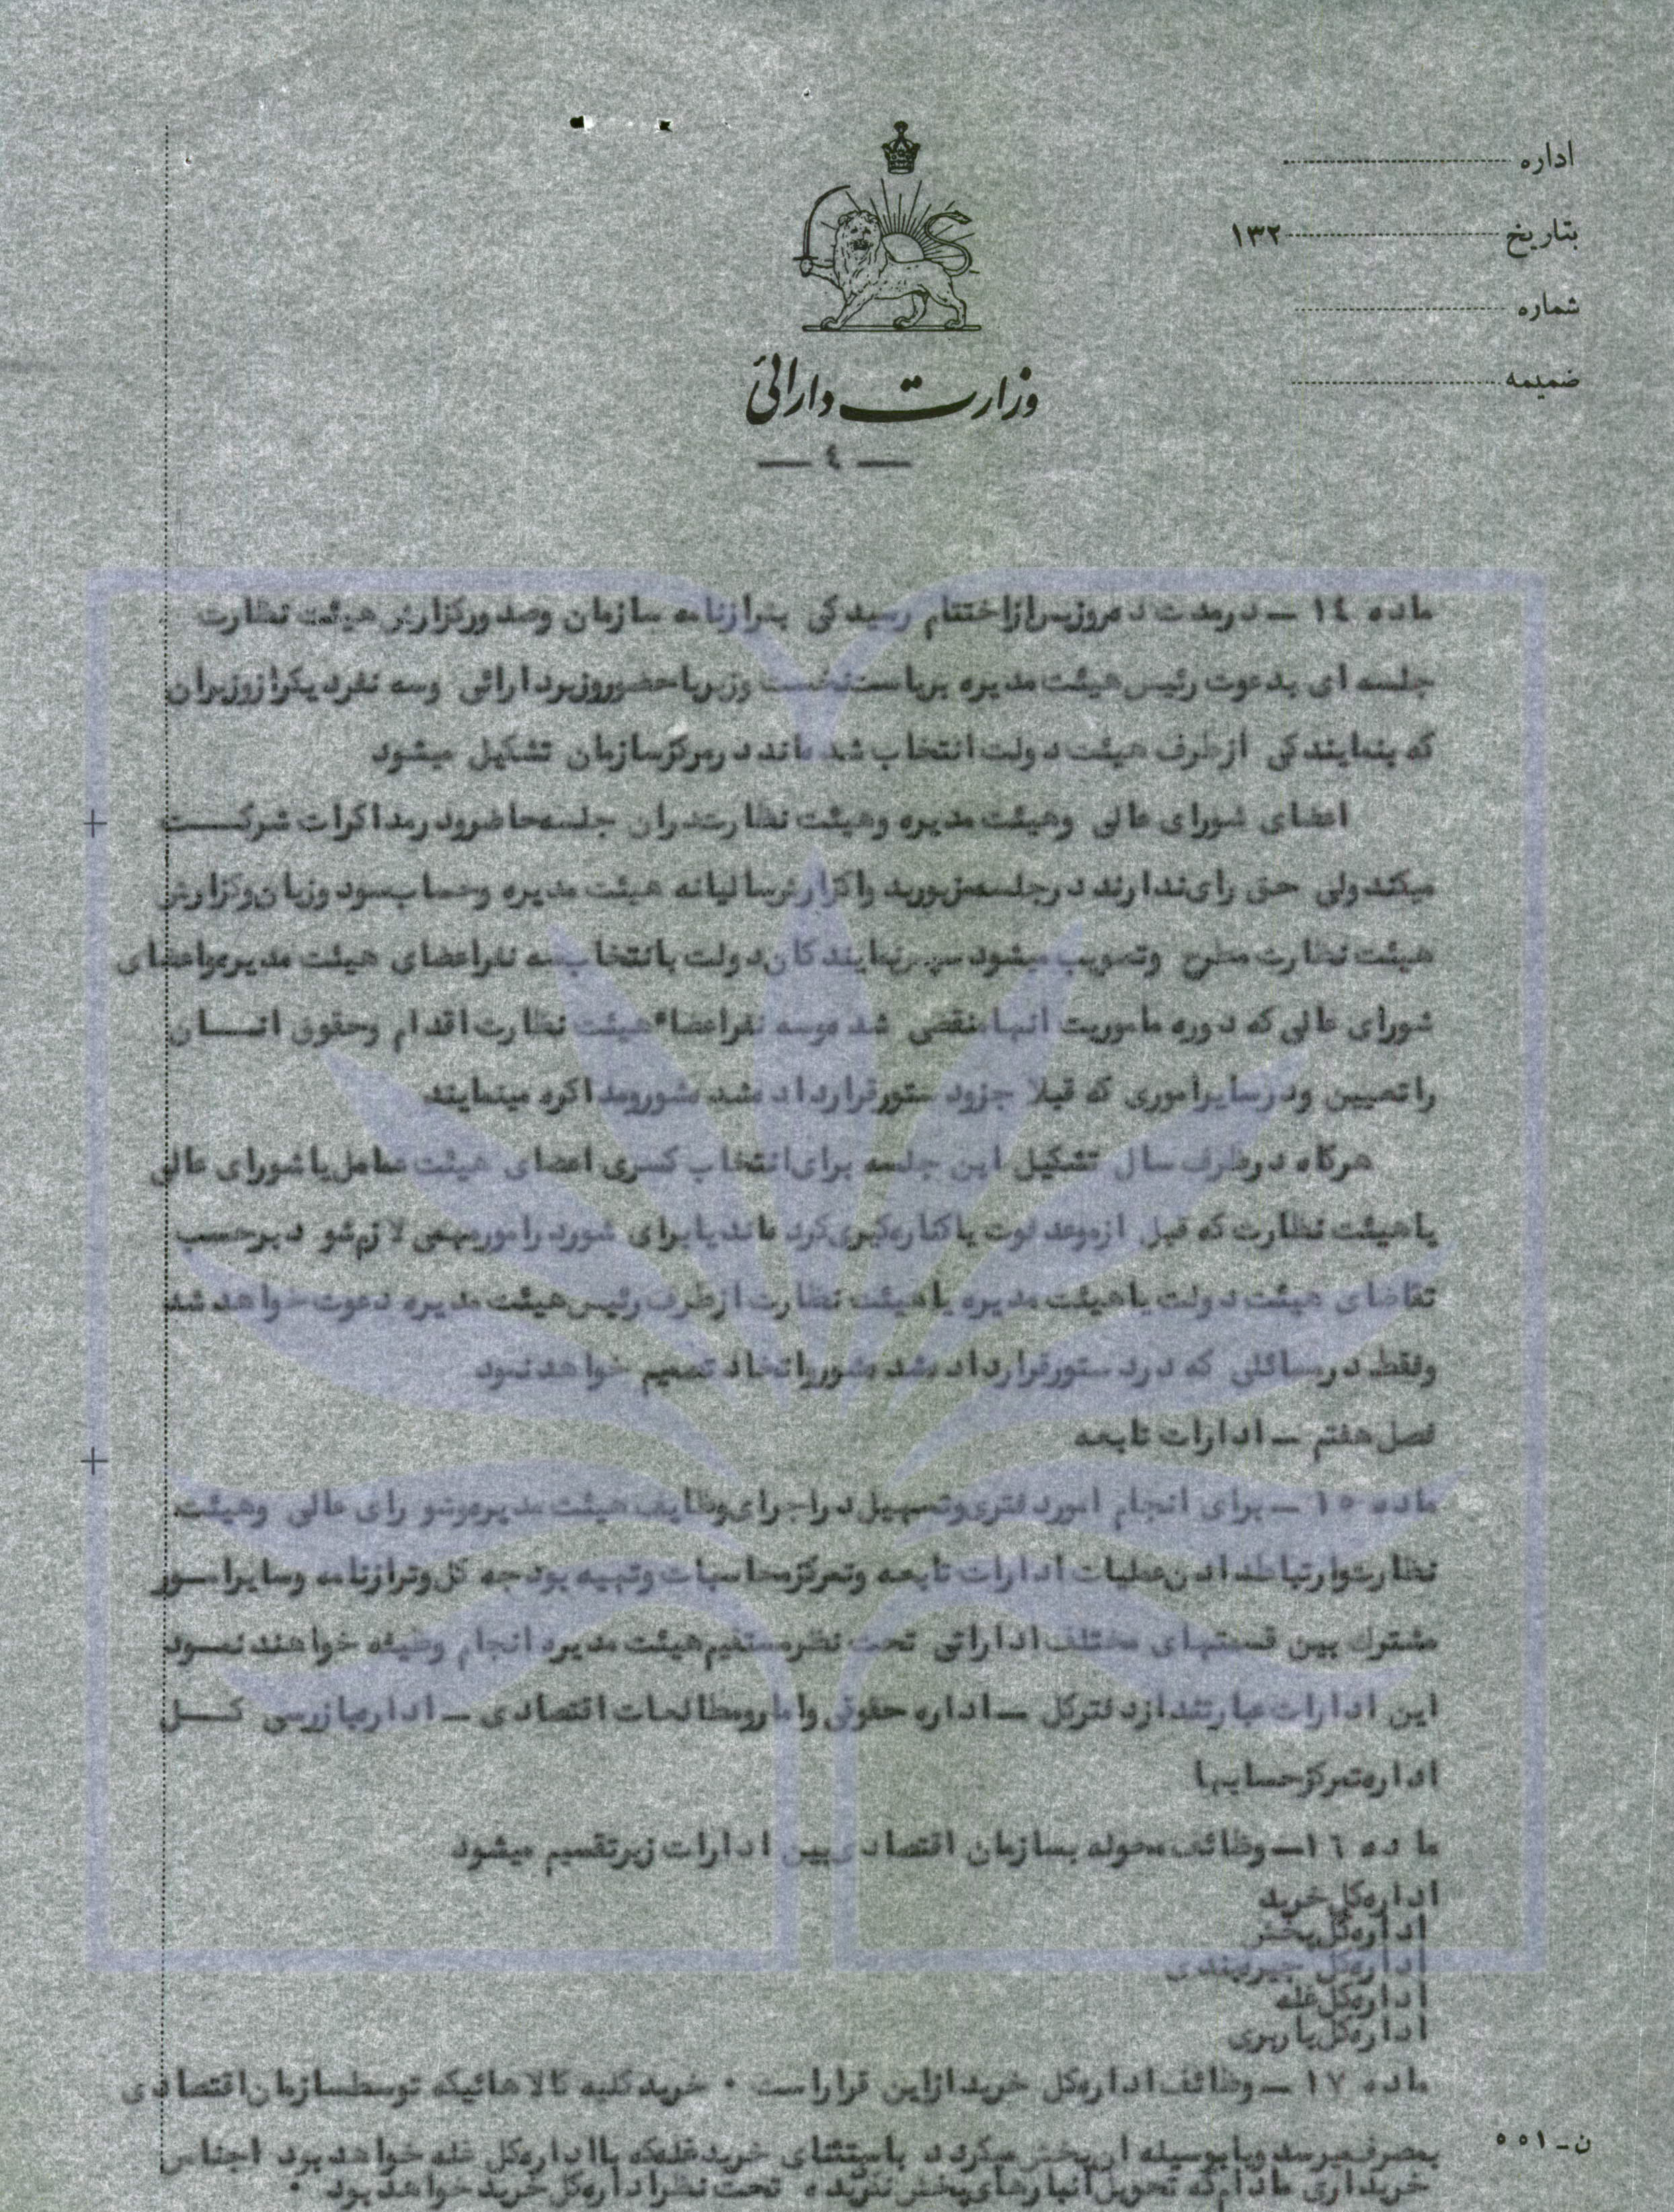 اداره
بتاریخ ۱۳۲
شماره
ضمیمه
وزارت دارائی
— ٤ —
ماده ١٤ — درمدت ده روز پس ازاختتام رسیدگی بترازنامه سازمان وصدورگزارش هیئت نظارت
جلسه ای بدعوت رئیس هیئت مدیره بریاست نخست وزیر باحضور وزیر دارائی وسه نفر دیگر ازوزیران
که بنمایندگی ازطرف هیئت دولت انتخاب شده اند درمرکزسازمان تشکیل میشود
اعضای شورای عالی وهیئت مدیره وهیئت نظارت دران جلسه حاضر ودرمذاکرات شرکت
میکند ولی حق رای ندارند درجلسه مزبور گزارش سالیانه هیئت مدیره وحساب سود وزیان وگزارش
هیئت نظارت مطرح وتصویب میشود سپس نمایندگان دولت بانتخاب سه نفراعضای هیئت مدیره واعضای
شورای عالی که دوره ماموریت انها منقضی شده وسه نفراعضاء هیئت نظارت اقدام وحقوق انسان
راتعیین ودرسایراموری که قبلا جزودستورقرارداده شد مشورومذاکره مینمایند
هرگاه درظرف سال تشکیل این جلسه برای انتخاب کسری اعضای هیئت عامل یاشورای عالی
یاهیئت نظارت که قبل ازموعد فوت یاکناره گیری کرده اند یابرای شوردرامورمهمی لازم شود برحسب
تقاضای هیئت دولت یاهیئت مدیره یاهیئت نظارت ازطرف رئیس هیئت مدیره دعوت خواهد شد
وفقط درمسائلی که دردستورقرارداده شد مشورواتخاذ تصمیم خواهد نمود
فصل هفتم — ادارات تابعه
ماده ١٥ — برای انجام امور دفتری وتسهیل دراجرای وظایف هیئت مدیره وشورای عالی وهیئت
نظارت وارتباط دادن عملیات ادارات تابعه وتمرکزمحاسبات وتهیه بودجه کل وترازنامه وسایرامور
مشترك بین قسمتهای مختلف اداراتی تحت نظرمستقیم هیئت مدیره انجام وظیفه خواهند نمود
این ادارات عبارتند ازدفترکل — اداره حقوقی وامارومطالعات اقتصادی — اداره بازرسی کل
اداره تمرکزحسابها
ماده ١٦ — وظائف محوله بسازمان اقتصادی بین ادارات زیرتقسیم میشود
اداره کل خرید
اداره کل پخش
اداره کل جیره بندی
اداره کل غله
اداره کل باربری
ماده ١٧ — وظائف اداره کل خرید ازاین قراراست • خرید کلیه کالاهائیکه توسط سازمان اقتصادی
بمصرف میرسد ویابوسیله ان پخش میگردد باستثنای خرید غله که بااداره کل غله خواهد بود اجناس
خریداری مادام که تحویل انبارهای پخش نگردیده تحت نظراداره کل خرید خواهد بود •
ن — ٥٥١